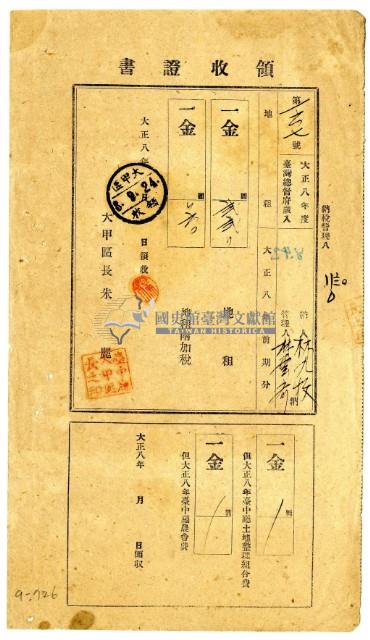 領收證書
納稅管理人
第 號
大正八年度
臺灣總督府歲入
地租
大正八 前期分
納 人 林九枝 納
管理人
一金 圓
地租
一金 圓
地租附加稅
大正八年 月 日領收
大甲
8.9.24.
領收
大甲區長 朱 麗
國史館臺灣文獻館
TAIWAN HISTORICA
一金 圓
但大正八年臺中廳土地整理組合費
一金 圓
但大正八年臺中廳農會費
大正八年 月 日領收
9-726